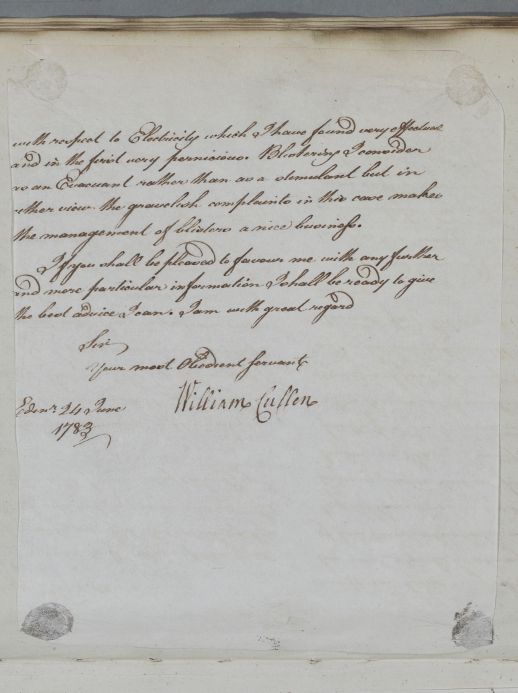 with respect to Electricity which I have found very effectual
and in the first very pernicious. Blistering I consider
as an Evacuant rather than as a stimulant but in
either view the gravelish complaints in this case makes
the management of blisters a nice business.
If you shall be pleased to favour me with any further
and more particular information I shall be ready to give
the best advice I can. I am with great regard
Sir
Your most Obedient servant
William Cullen
Edinr 24 June
1783